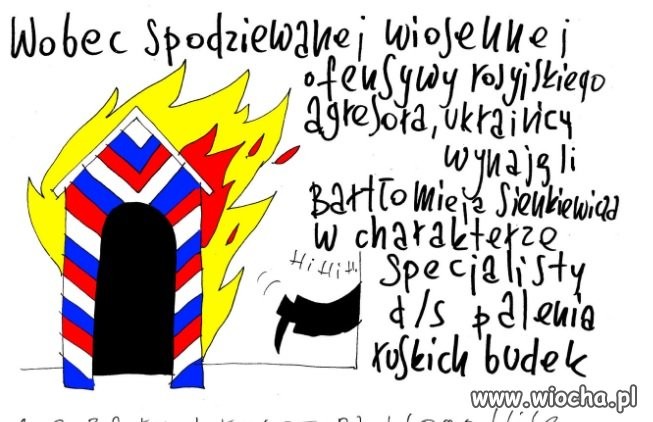 Wobec spodziewanej wiosennej
ofensywy rosyjskiego
agresora, ukraińcy
wynajęli
Bartłomieja Sienkiewicza
w charakterze
Hi Hi Hi
specjalisty
d/s palenia
ruskich budek
www.wiocha.pl